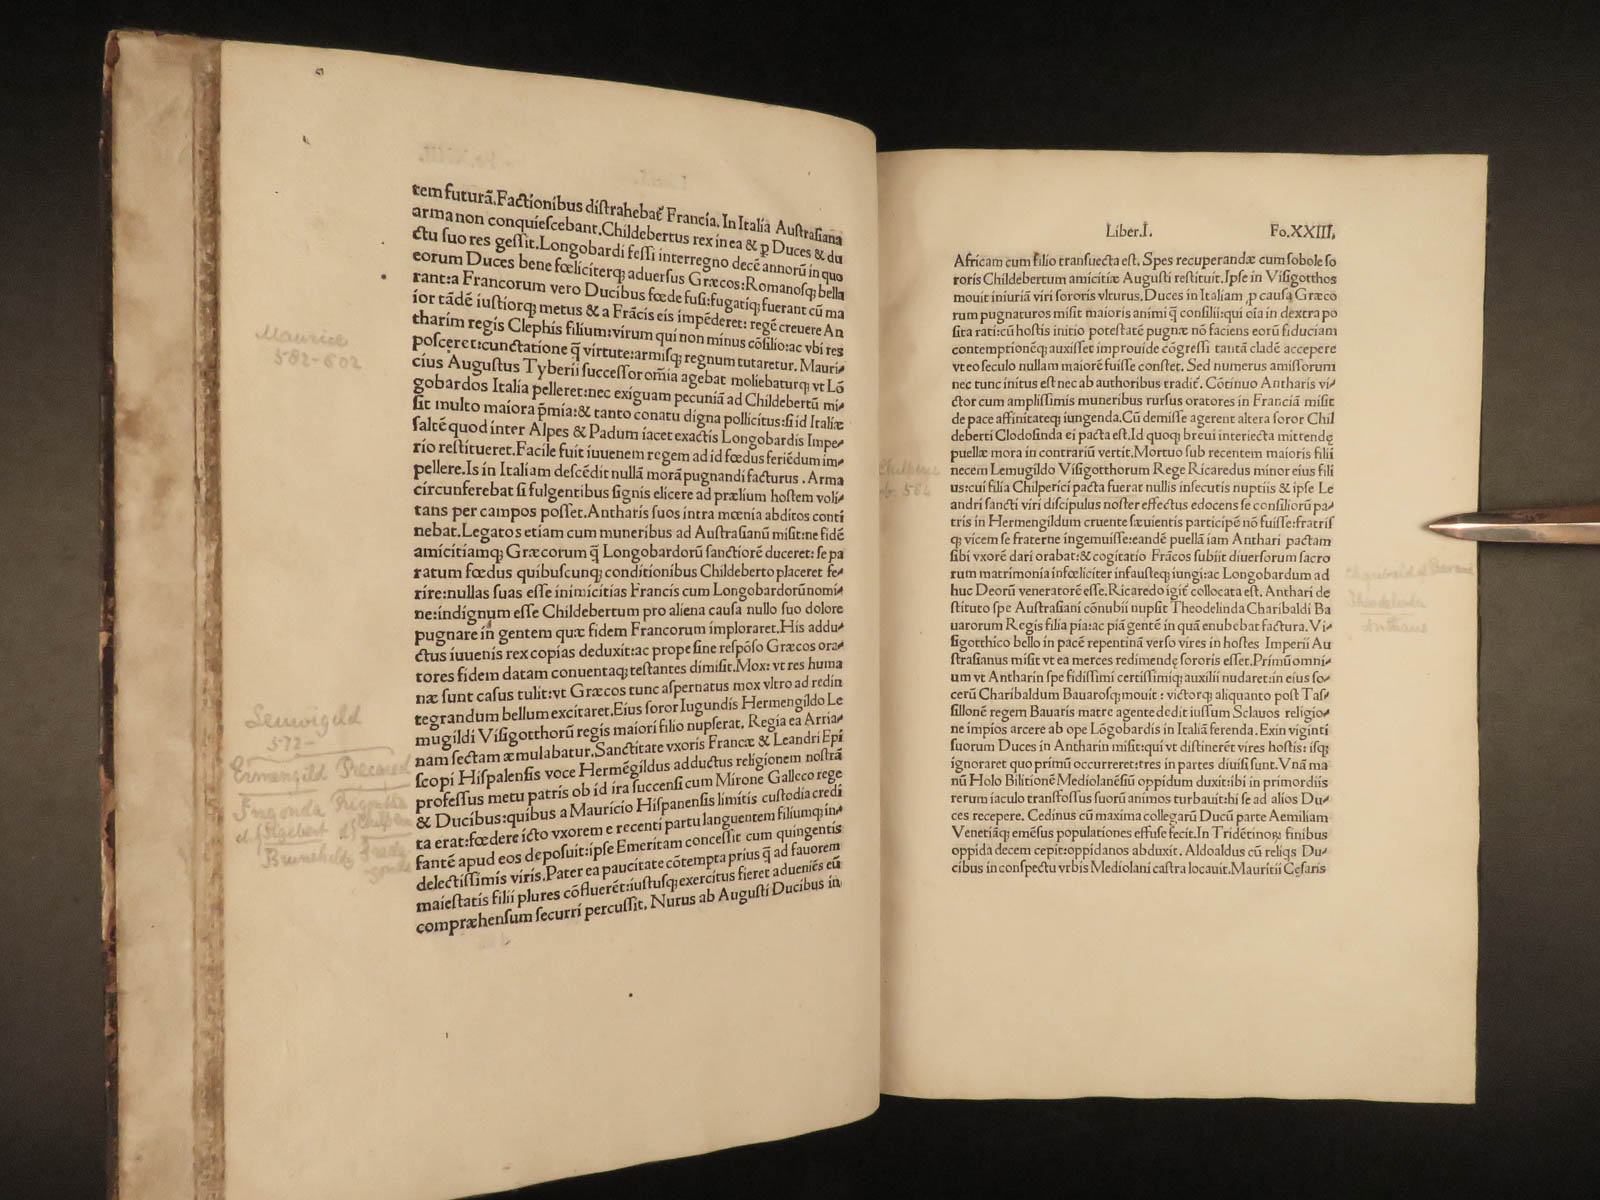 tem futurã.Factionibus distrahebat᷑ Francia. In Italia Australiana
arma non conquiescebant.Childebertus rex in ea & ꝑ Duces & du
ctu suo res gessit.Longobardi fessi interregno decẽ annorũ in quo
eorum Duces bene fœliciterq; aduersus Græcos:Romanosq; bella
rant:a Francorum vero Ducibus fœde fusi:fugatiq; fuerant cũ ma
ior tãdẽ iustiorq; metus & a Frãcis eis impẽderet: regẽ creuere An
tharim regis Clephis filium:virum qui non minus cõsilio:ac vbi res
posceret:cunctatione q̃ virtute:armisq; regnum tutaretur. Mauri⸗
cius Augustus Tyberii successor om̃ia agebat moliebaturq; vt Lõ
gobardos Italia pelleret:nec exiguam pecuniã ad Childebertũ mi⸗
sit multo maiora p̃mia:& tanto conatu digna pollicitus:si id Italiæ
saltẽ quod inter Alpes & Padum iacet exactis Longobardis Impe⸗
rio restitueret.Facile fuit iuuenem regem ad id fœdus feriẽdum im⸗
pellere.Is in Italiam descẽdit nullã morã pugnandi facturus . Arma
circunferebat si fulgentibus signis elicere ad prælium hostem voli⸗
tans per campos posset.Antharis suos intra mœnia abditos conti
nebat.Legatos etiam cum muneribus ad Austrasianũ misit:ne fidẽ
amicitiamq; Græcorum q̃ Longobardorũ sanctiorẽ duceret: se pa
ratum fœdus quibuscunq; conditionibus Childeberto placeret fe⸗
rire:nullas suas esse inimicitias Francis cum Longobardorũ nomi⸗
ne:indignum esse Childebertum pro aliena causa nullo suo dolore
pugnare in gentem quæ fidem Francorum imploraret.His addu⸗
ctus iuuenis rex copias deduxit:ac prope sine respõso Græcos ora⸗
tores fidem datam conuentaq; testantes dimisit.Mox: vt res huma
næ sunt casus tulit:vt Græcos tunc aspernatus mox vltro ad redin
tegrandum bellum excitaret.Eius soror Iugundis Hermengildo Le
mugildi Visigotthorũ regis maiori filio nupserat. Regia ea Arria⸗
nam sectam æmulabatur.Sanctitate vxoris Francæ & Leandri Epi
scopi Hispalensis voce Hermẽgildus adductus religionem nostrã
professus metu patris ob id ira succensi cum Mirone Galleco rege
& Ducibus:quibus a Mauricio Hispanensis limitis custodia credi
ta erat:fœdere icto vxorem e recenti partu languentem filiumq; in⸗
fantẽ apud eos deposuit:ipse Emeritam concessit cum quingentis
delectissimis viris.Pater ea paucitate cõtempta prius q̃ ad fauorem
maiestatis filii plures cõfluerẽt:iustusq; exercitus fieret adueniẽs eũ
compræhensum securri percussit. Nurus ab Augusti Ducibus in
Maurice
582-602
Leuvigild
572-
Ermengild
Brunehelde
Liber.I. Fo.XXIII.
Africam cum filio transuecta est. Spes recuperandæ cum sobole so
roris Childebertum amicitiæ Augusti restituit.Ipse in Visigotthos
mouit iniuriã viri sororis vlturus. Duces in Italiam ,ꝓ causa Græco
rum pugnaturos misit maioris animi q̃ consilii:qui oĩa in dextra po
sita rati:cũ hostis initio potestatẽ pugnæ nõ faciens eorũ fiduciam
contemptionẽq; auxisset improuide cõgressi tantã cladẽ accepere
vt eo seculo nullam maiorẽ fuisse constet. Sed numerus amissorum
nec tunc initus est nec ab authoribus tradit᷑. Cõtinuo Antharis vi⸗
ctor cum amplissimis muneribus rursus oratores in Franciã misit
de pace affinitateq; iungenda.Cũ demisse agerent altera soror Chil
deberti Clodosinda ei pacta est.Id quoq; breui interiecta mittendę
puellæ mora in contrariũ vertit.Mortuo sub recentem maioris filii
necem Lemugildo Visigotthorum Rege Ricaredus minor eius fili
us:cui filia Chilperici pacta fuerat nullis insecutis nuptiis & ipse Le
andri sancti viri discipulus noster effectus edocens se consiliorũ pa⸗
tris in Hermengildum cruente sæuientis participẽ nõ fuisse:fratrisꝗ
q; vicem se fraterne ingemuisse:eandẽ puellã iam Anthari pactam
sibi vxorẽ dari orabat:& cogitatio Frãcos subiit diuersorum sacro
rum matrimonia infœliciter infausteq; iungi:ac Longobardum ad
huc Deorũ veneratorẽ esse.Ricaredo igit᷑ collocata est. Anthari de
stituto spe Austrasiani cõnubii nupsit Theodelinda Charibaldi Ba
uarorum Regis filia pia:ac piã gentẽ in quã enubebat factura.Vi⸗
sigotthico bello in pacẽ repentinã verso vires in hostes Imperii Au
strasianus misit vt ea merces redimendę sororis esset.Primũ omni⸗
um vt Antharin spe fidissimi certissimiq; auxilii nudaret:in eius so⸗
cerũ Charibaldum Bauarosq; mouit : victorq; aliquanto post Tas⸗
sillonẽ regem Bauaris matre agente dedit iussum Sclauos religio⸗
ne impios arcere ab ope Lõgobardis in Italiã ferenda. Exin viginti
suorum Duces in Antharin misit:qui vt distinerẽt vires hostis: isq;
ignoraret quo primũ occurreret:tres in partes diuisi sunt. Vnã ma
nũ Holo Bilitionẽ Mediolanẽsiũ oppidum duxit:ibi in primordiis
rerum iaculo transfossus suorũ animos turbauit:hi se ad alios Du⸗
ces recepere. Cedinus cũ maxima collegarũ Ducũ parte Aemiliam
Venetiãq; emẽsus populationes effuse fecit.In Tridẽtinorꝝ finibus
oppida decem cepit:oppidanos abduxit. Aldoaldus cũ reliqs Du⸗
cibus in conspectu vrbis Mediolani castra locauit.Mauritii Cęsaris
Chilperic
ob. 584
Theodelinda
Antharis